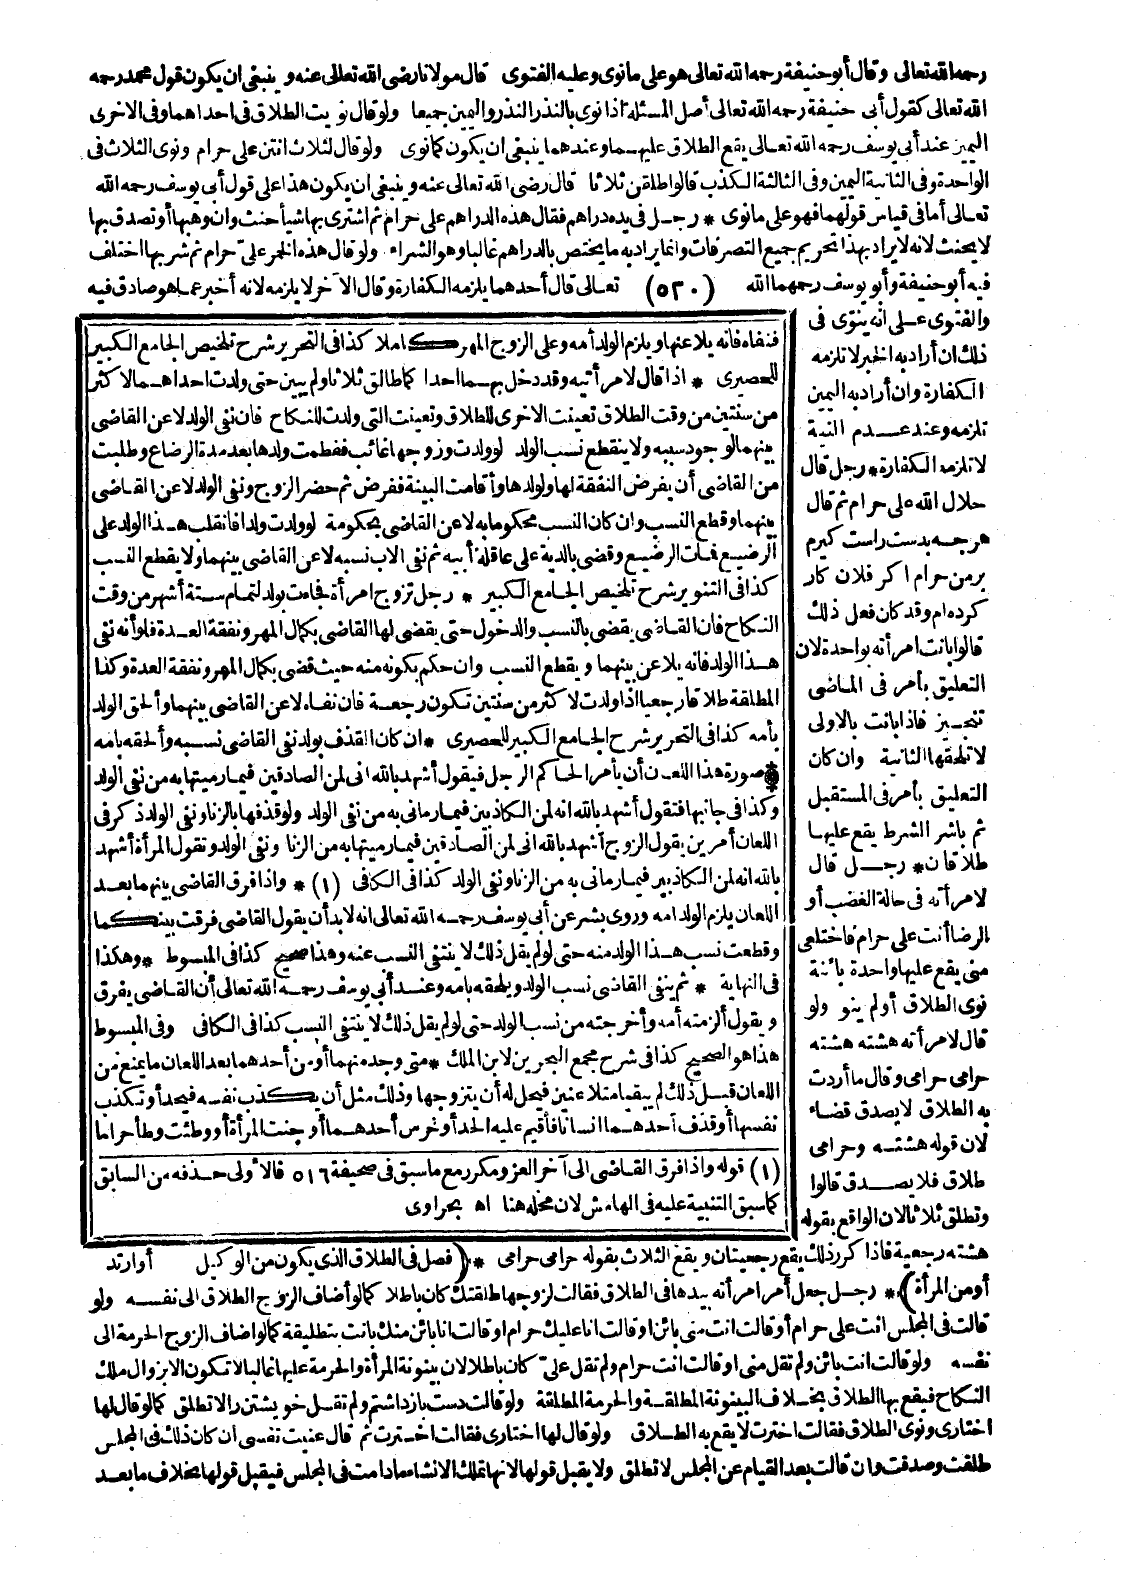 رحمه الله تعالى وقال أبو حنيفة رحمه الله تعالى هو على ما نوى وعليه الفتوى قال مولانا رضى الله تعالى عنه وينبغى ان يكون قول محمد رحمه
الله تعالى كقول أبى حنيفة رحمه الله تعالى أصل المسئلة اذا نوى بالنذر النذر واليمين جميعا ولو قال نويت الطلاق فى احداهما وفى الاخرى
اليمين عند أبى يوسف رحمه الله تعالى يقع الطلاق عليهما وعندهما ينبغى ان يكون كما نوى ولو قال لثلاث انتن على حرام ونوى الثلاث فى
الواحدة وفى الثانية اليمين وفى الثالثة الكذب قالوا طلقن ثلاثا قال رضى الله تعالى عنه وينبغى ان يكون هذا على قول أبى يوسف رحمه الله
تعالى أما فى قياس قولهما فهو على ما نوى * رجل فى يده دراهم فقال هذه الدراهم على حرام ثم اشترى بها شيأ حنث وان وهبها أو تصدق بها
لا يحنث لانه لا يراد بهذا تحريم جميع التصرفات وانما يراد به ما يختص بالدراهم غالبا وهو الشراء ولو قال هذه الخمر على حرام ثم شربها اختلف
فيه أبو حنيفة وأبو يوسف رحمهما الله (٥٢٠) تعالى قال أحدهما يلزمه الكفارة وقال الآخر لا يلزمه لانه أخبر عما هو صادق فيه
والفتوى على انه ينوى فى
ذلك ان أراد به الخبر لا تلزمه
الكفارة وان أراد به اليمين
تلزمه وعند عدم النية
لا تلزمه الكفارة * رجل قال
حلال الله على حرام ثم قال
هرجه بدست راست كيرم
بر من حرام اكر فلان كار
كرده ام وقد كان فعل ذلك
قالوا بانت امرأته بواحدة لان
التعليق بأمر فى الماضى
تنجيز فاذا بانت بالاولى
لا تلحقها الثانية وان كان
التعليق بأمر فى المستقبل
ثم باشر الشرط يقع عليها
طلاقان * رجل قال
لامرأته فى حالة الغضب أو
الرضا أنت على حرام فاختلعى
منى يقع عليها واحدة بائنة
نوى الطلاق أو لم ينو ولو
قال لامرأته هشته هشته
حرامى حرامى وقال ما أردت
به الطلاق لا يصدق قضاء
لان قوله هشته وحرامى
طلاق فلا يصدق قالوا
وتطلق ثلاثا لان الواقع بقوله
فنفاه فانه يلاعنها ويلزم الولد أمه وعلى الزوج المهر كاملا كذا فى التحرير شرح تلخيص الجامع الكبير
للحصيرى * اذا قال لامرأتيه وقد دخل بهما احدا كما طالق ثلاثا ولم يبين حتى ولدت احداهما لاكثر
من سنتين من وقت الطلاق تعينت الاخرى للطلاق وتعينت التى ولدت للنكاح فان نفى الولد لاعن القاضى
بينهما لوجود سببه ولا ينقطع نسب الولد لو ولدت وزوجها غائب ففطمت ولدها بعد مدة الرضاع وطلبت
من القاضى أن يفرض النفقة لها ولولدها وأقامت البينة ففرض ثم حضر الزوج ونفى الولد لاعن القاضى
بينهما وقطع النسب وان كان النسب محكوما به لاعن القاضى بحكومة لو ولدت ولدا فانقلب هذا الولد على
الرضيع فمات الرضيع وقضى بالدية على عاقلة أبيه ثم نفى الاب نسبه لاعن القاضى بينهما ولا يقطع النسب
كذا فى التنوير شرح تلخيص الجامع الكبير * رجل تزوج امرأة فجاءت بولد لتمام ستة أشهر من وقت
النكاح فان القاضى يقضى بالنسب والدخول حتى يقضى لها القاضى بكمال المهر ونفقة العدة فلو أنه نفى
هذا الولد فانه يلاعن بينهما ويقطع النسب وان حكم بكونه منه حيث قضى بكمال المهر ونفقة العدة وكذا
المطلقة طلاقا رجعيا اذا ولدت لاكثر من سنتين تكون رجعة فان نفاه لاعن القاضى بينهما وألحق الولد
بأمه كذا فى التحرير شرح الجامع الكبير للحصيرى * ان كان القذف بولد نفى القاضى نسبه وألحقه بامه
* صورة هذا اللعان أن يأمر الحاكم الرجل فيقول أشهد بالله انى لمن الصادقين فيما رميتها به من نفى الولد
وكذا فى جانبها فتقول أشهد بالله انه لمن الكاذبين فيما رمانى به من نفى الولد ولو قذفها بالزنا ونفى الولد ذكر فى
اللعان أمرين يقول الزوج أشهد بالله انى لمن الصادقين فيما رميتها به من الزنا ونفى الولد وتقول المرأة أشهد
بالله انه لمن الكاذبين فيما رمانى به من الزنا ونفى الولد كذا فى الكافى (١) * واذا فرق القاضى بينهما بعد
اللعان يلزم الولد امه وروى بشر عن أبى يوسف رحمه الله تعالى انه لا بد أن يقول القاضى فرقت بينكما
وقطعت نسب هذا الولد منه حتى لو لم يقل ذلك لا ينتفى النسب عنه وهذا صحيح كذا فى المبسوط * وهكذا
فى النهاية * ثم ينفى القاضى نسب الولد ويلحقه بامه وعند أبى يوسف رحمه الله تعالى أن القاضى يفرق
ويقول ألزمته أمه وأخرجته من نسب الولد حتى لو لم يقل ذلك لا ينتفى النسب كذا فى الكافى وفى المبسوط
هذا هو الصحيح كذا فى شرح مجمع البحرين لابن الملك * متى وجد منهما أو من أحدهما بعد اللعان ما يمنع من
اللعان قبل ذلك لم يبقيا متلاعنين فيحل له أن يتزوجها وذلك مثل أن يكذب نفسه فيحد أو تكذب
نفسها أو قذف أحدهما انسانا فأقيم عليه الحد أو خرس أحدهما أو جنت المرأة أو وطئت وطأ حراما
(١) قوله واذا فرق القاضى الى آخر العزو مكرر مع ما سبق فى صحيفة ٥١٦ فالاولى حذفه من السابق
كما سبق التنبيه عليه فى الهامش لان محله هنا اه بحراوى
هشته رجعية فاذا كرر ذلك يقع رجعيتان ويقع الثلاث بقوله حرامى حرامى * (فصل فى الطلاق الذى يكون من الوكيل
أو من المرأة) * رجل جعل أمر امرأته بيدها فى الطلاق فقالت لزوجها طلقتك كان باطلا كما لو أضاف الزوج الطلاق الى نفسه ولو
قالت فى المجلس انت على حرام أو قالت انت منى بائن او قالت انا عليك حرام او قالت انا بائن منك بانت بتطليقة كما لو اضاف الزوج الحرمة الى
نفسه ولو قالت انت بائن ولم تقل منى او قالت انت حرام ولم تقل على كان باطلا لان بينونة المرأة والحرمة عليها غالبا لا تكون الا بزوال ملك
النكاح فيقع بها الطلاق بخلاف البينونة المطلقة والحرمة المطلقة ولو قالت دست بازداشتم ولم تقل خويشتن را لا تطلق كما لو قال لها
اختارى ونوى الطلاق فقالت اخترت لا يقع به الطلاق ولو قال لها اختارى فقالت اخترت ثم قال عنيت نفسى ان كان ذلك فى المجلس
طلقت وصدقت وان قالت بعد القيام عن المجلس لا تطلق ولا يقبل قولها لانها تملك الانشاء ما دامت فى المجلس فيقبل قولها بخلاف ما بعد